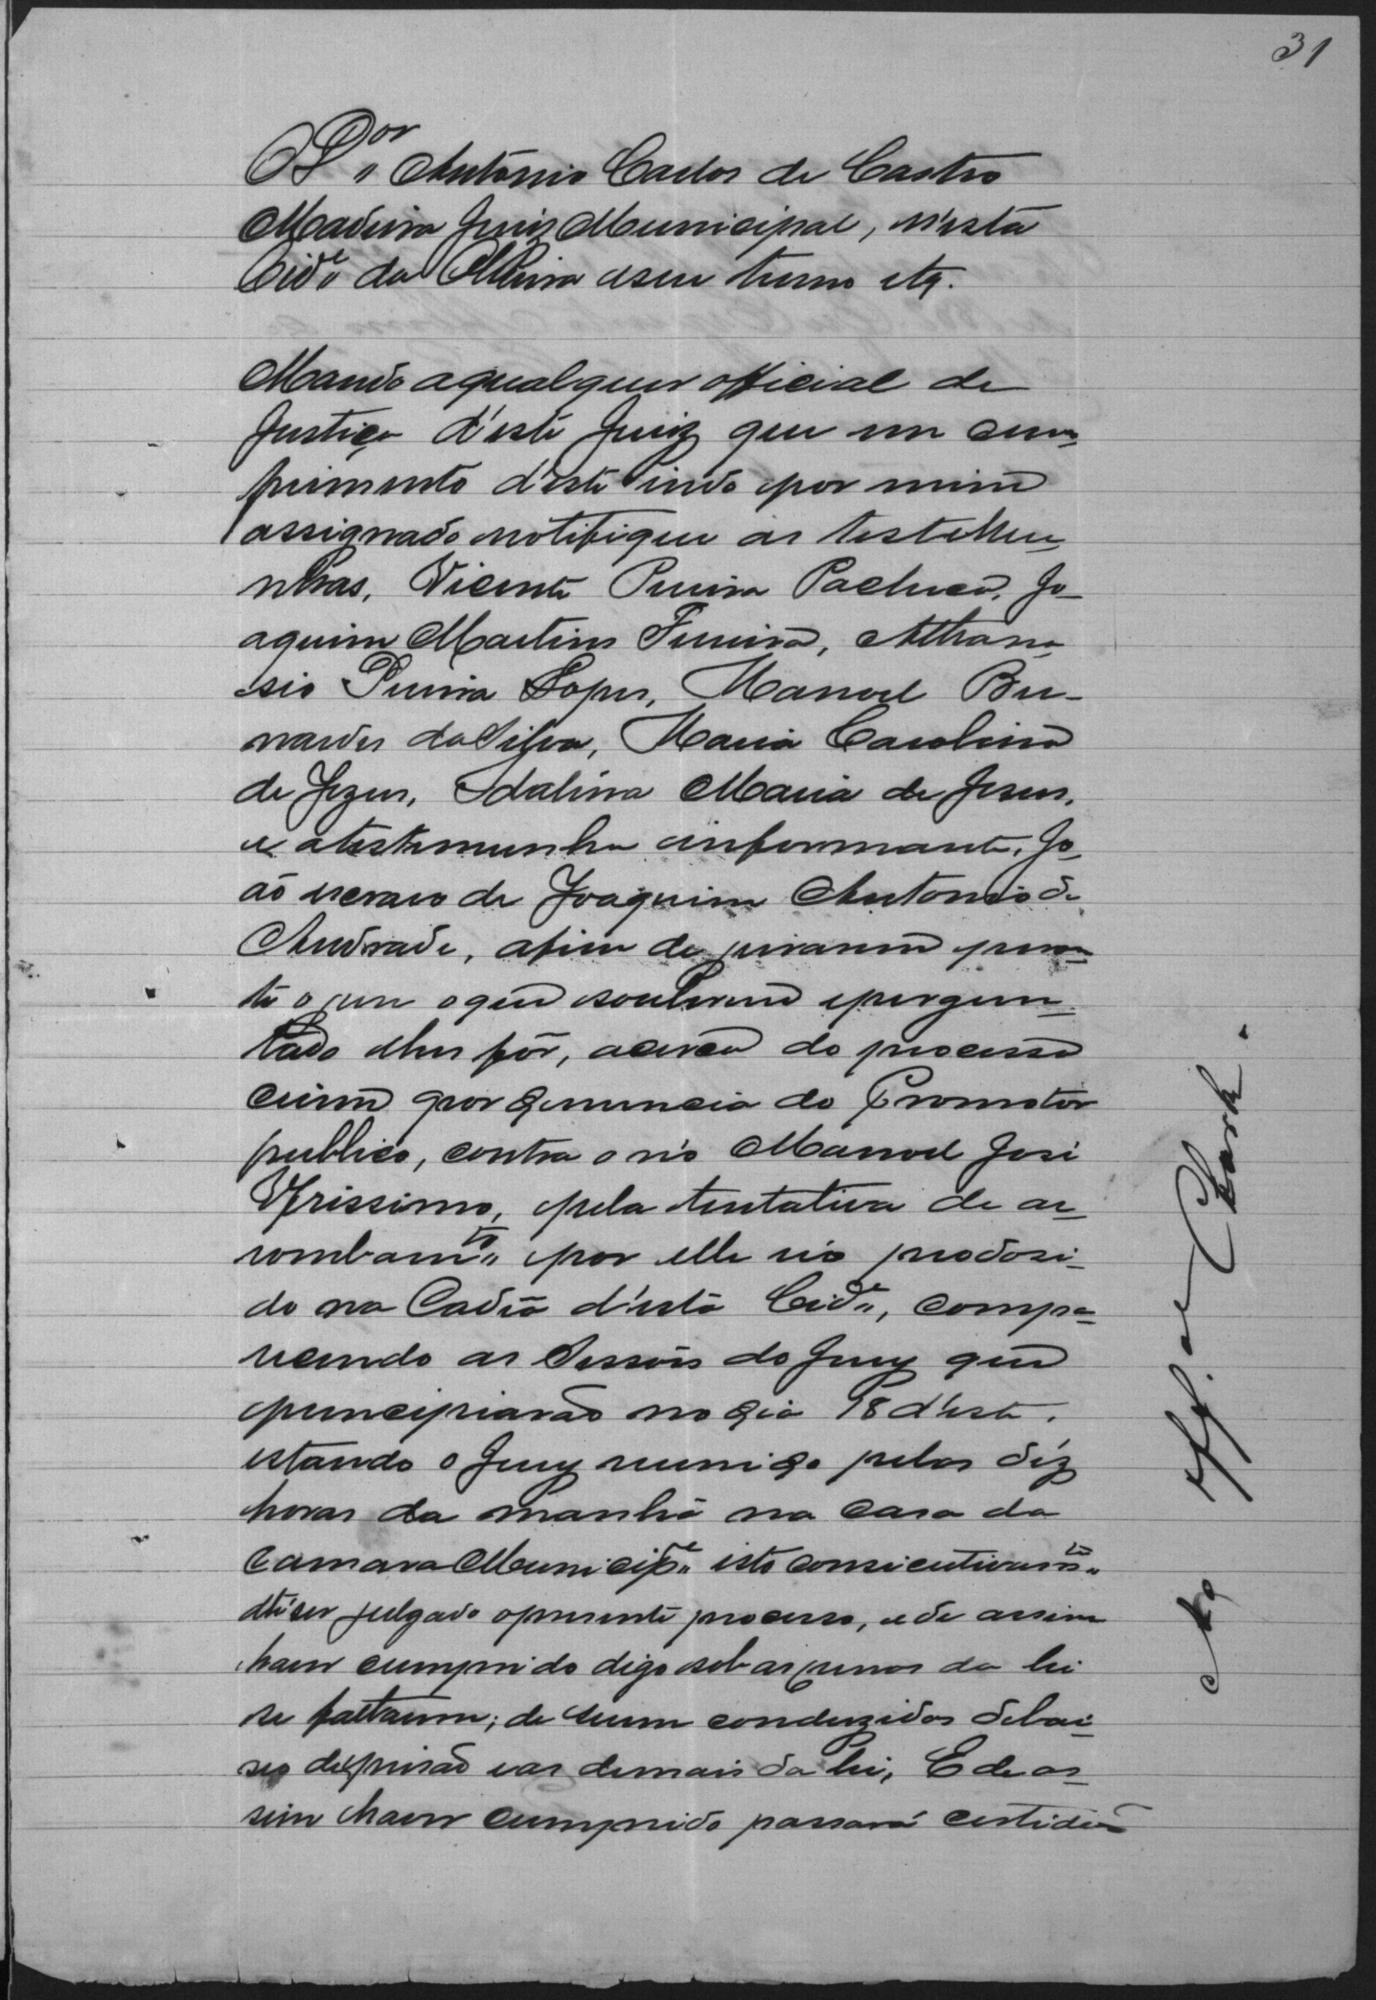 31
O Dor Antonio Carlos de Castro
Madeira Juiz Municipal, n'esta
Cide da Oliveira e seu termo etc.
Mando a qualquer official de
Justiça d'este Juiz que em cum-
primento d'este indo por mim
assignado notifique as testemu-
nhas, Vicente Pereira Pacheco, Jo-
aquim Martins Ferreira, Athana-
sio Pereira Lopes, Manoel Ber-
nardes da Silva, Maria Carolina
de Jezus, Idalina Maria de Jesus,
e a testemunha informante, Jo-
ão escravo de Joaquim Antonio de
Andrade, afim de jurarem peran-
te o jury o que souberem e pergun-
tado lhes fôr, acerca do processo
crime por denuncia do Promotor
publico, contra o réo Manoel José
Virissimo, pela tentativa de ar-
rombamto por elle réo prodosi-
do na Cadêa d'esta Cide, compa-
recendo as Sessões do Jury que
principiarão no dia 18 d'este,
estando o Jury reunido pelas déz
horas da manhã na casa da
Camara Municipe isto consicutivamte
até ser julgado o presente processo, e de assim
haver cumprido digo sob as penas da lei
se faltarem; de serem conduzidos debai-
xo de prisão e as demais da lei, E de as-
sim haver cumprido passará certidão
Ao Off. de